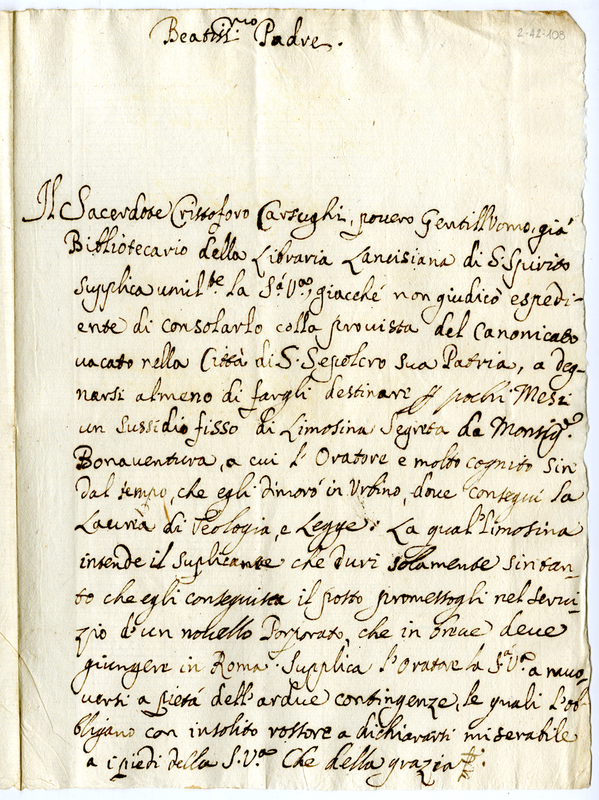 Beatiss.mo Padre.
2-42-108
Il Sacerdote Cristoforo Carsughi, povero Gentilhuomo, già
Bibliotecario della Libraria Lancisiana di S. Spirito
supplica umil.te la S.tà V.ra, giacché non giudicò espedi-
ente di consolarlo colla provista del Canonicato
vacato nella Città di S. Sepolcro sua Patria, a deg-
narsi almeno di fargli destinare p pochi Mesi
un sussidio fisso di Limosina segreta da Monsig.r
Bonaventura, a cui l'Oratore e molto cognito sin
dal tempo, che egli dimorò in Urbino, dove conseguì la
Laurea di Teologia, e Legge. La qual limosina
intende il suplicante che duri solamente sintan-
to che egli conseguisca il posto promessogli nel servi-
zio d'un novello Porporato, che in breve deve
giungere in Roma. Supplica l'Oratore la S.tà V.ra a muo-
versi a pietà dell'ardue contingenze, le quali l'ob-
bligano con insolito rossore a dichiararsi miserabile
a i piedi della S. V.ra Che della grazia